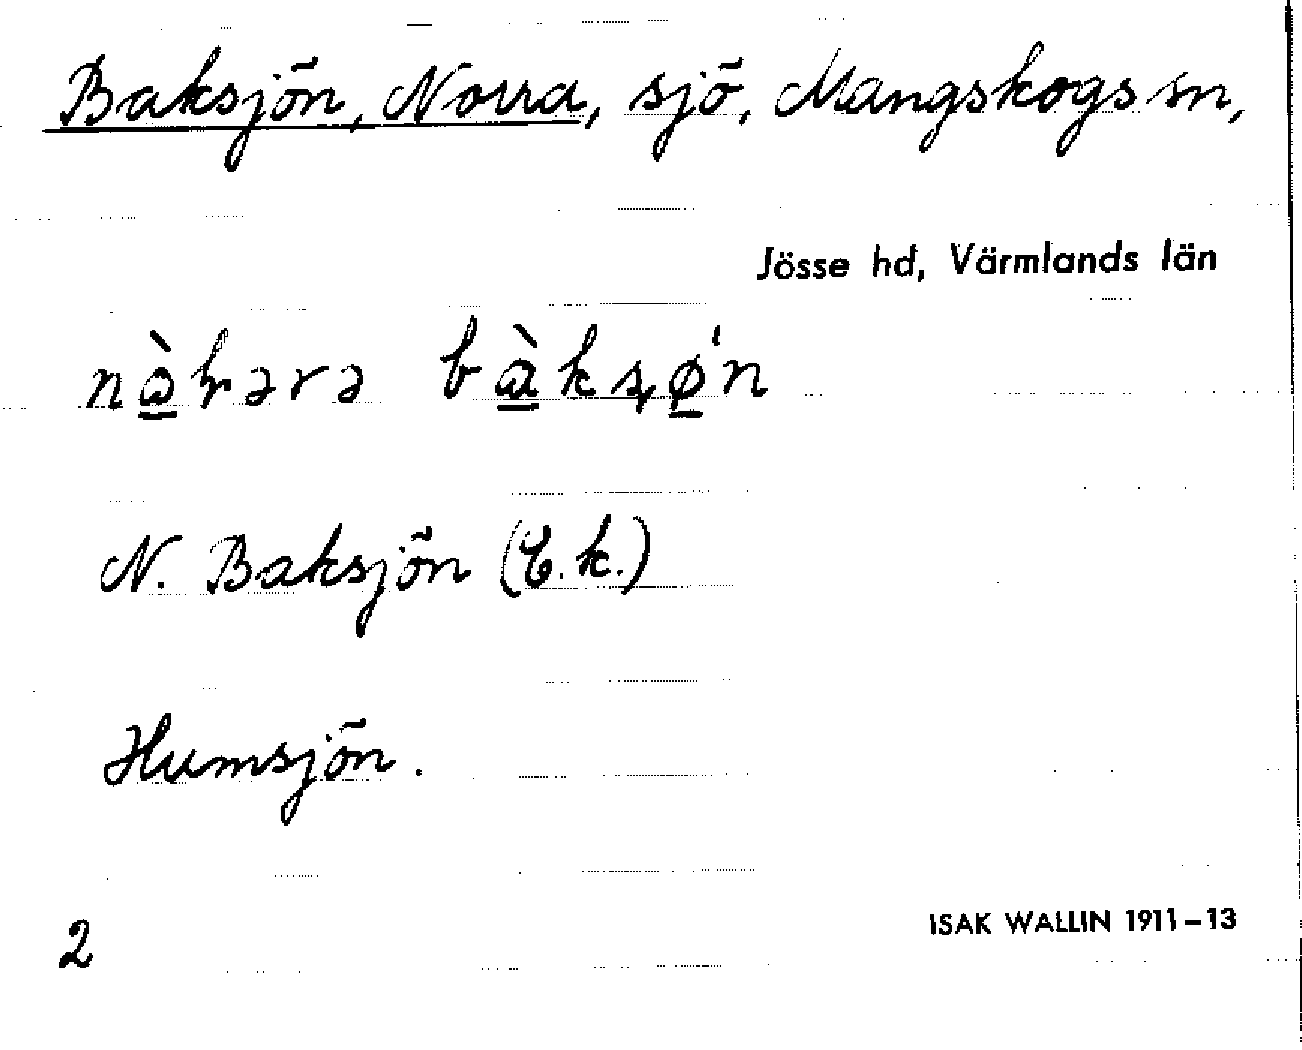 Baksjön, Norra, sjö, Mangskogs sn,
Jösse hd, Värmlands län
N. Baksjön (E.k.)
Humsjön.
2
ISAK WALLIN 1911–13